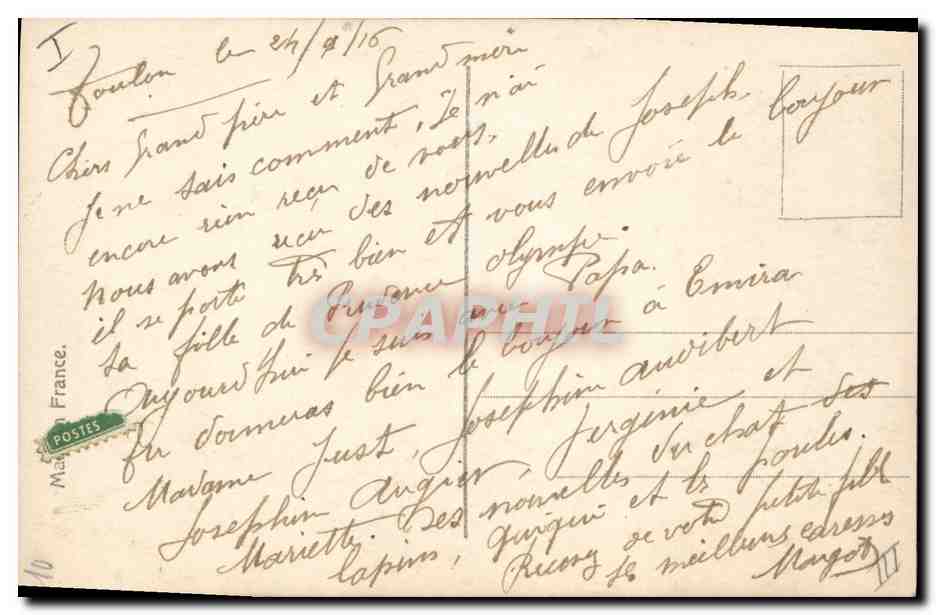 I
Toulon le 24/9/16
Chers Grand père et Grand mère
Je ne sais comment, Je n'ai
encore rien reçu de vous,
Nous avons reçu des nouvelles de Joseph.
il se porte très bien et vous envoie le bonjour
la fille de Prudence Olympe.
Aujourd'hui je suis avec Papa.
Tu donneras bien le bonjour à Emira
Madame Just, Josephin Audibert
Josephin Augier, Virginie et
Mariette. Des nouvelles du chat des
lapins, et les poules.
Recevez de votre petite fille
les meilleurs caresses
Margot
II
10
Ma n France.
POSTES
CPAPHIL